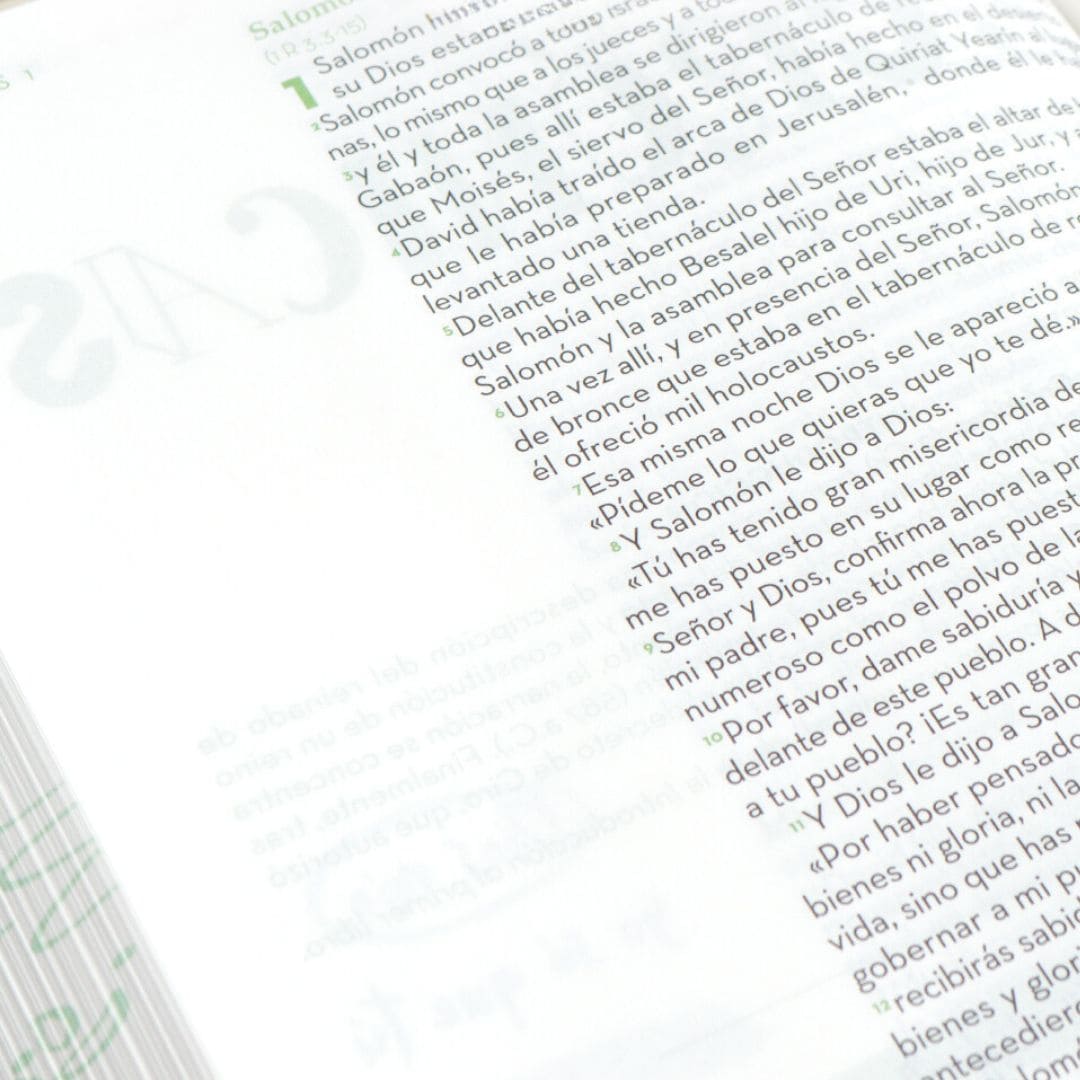 S 1
Salomó
(1 R 3.3-15)
1 Salomón
su Dios estaba
2 Salomón convocó a
nas, lo mismo que a los jueces y a
3 y él y toda la asamblea se dirigieron
Gabaón, pues allí estaba el tabernáculo de
que Moisés, el siervo del Señor, había hecho en el
4 David había traído el arca de Dios de Quiriat Yearín
que le había preparado en Jerusalén, donde él le
levantado una tienda.
5 Delante del tabernáculo del Señor estaba el altar de
que había hecho Besalel hijo de Uri, hijo de Jur, y
Salomón y la asamblea para consultar al Señor.
6 Una vez allí, y en presencia del Señor, Salomón
de bronce que estaba en el tabernáculo de
él ofreció mil holocaustos.
7 Esa misma noche Dios se le apareció a
«Pídeme lo que quieras que yo te dé.»
8 Y Salomón le dijo a Dios:
«Tú has tenido gran misericordia de
me has puesto en su lugar como re
9 Señor y Dios, confirma ahora la pr
mi padre, pues tú me has puest
numeroso como el polvo de la
10 Por favor, dame sabiduría y
delante de este pueblo. A d
a tu pueblo? ¡Es tan gran
11 Y Dios le dijo a Salo
«Por haber pensado
bienes ni gloria, ni la
vida, sino que has
gobernar a mi pu
12 recibirás sabid
bienes y glori
antecediero
lomó